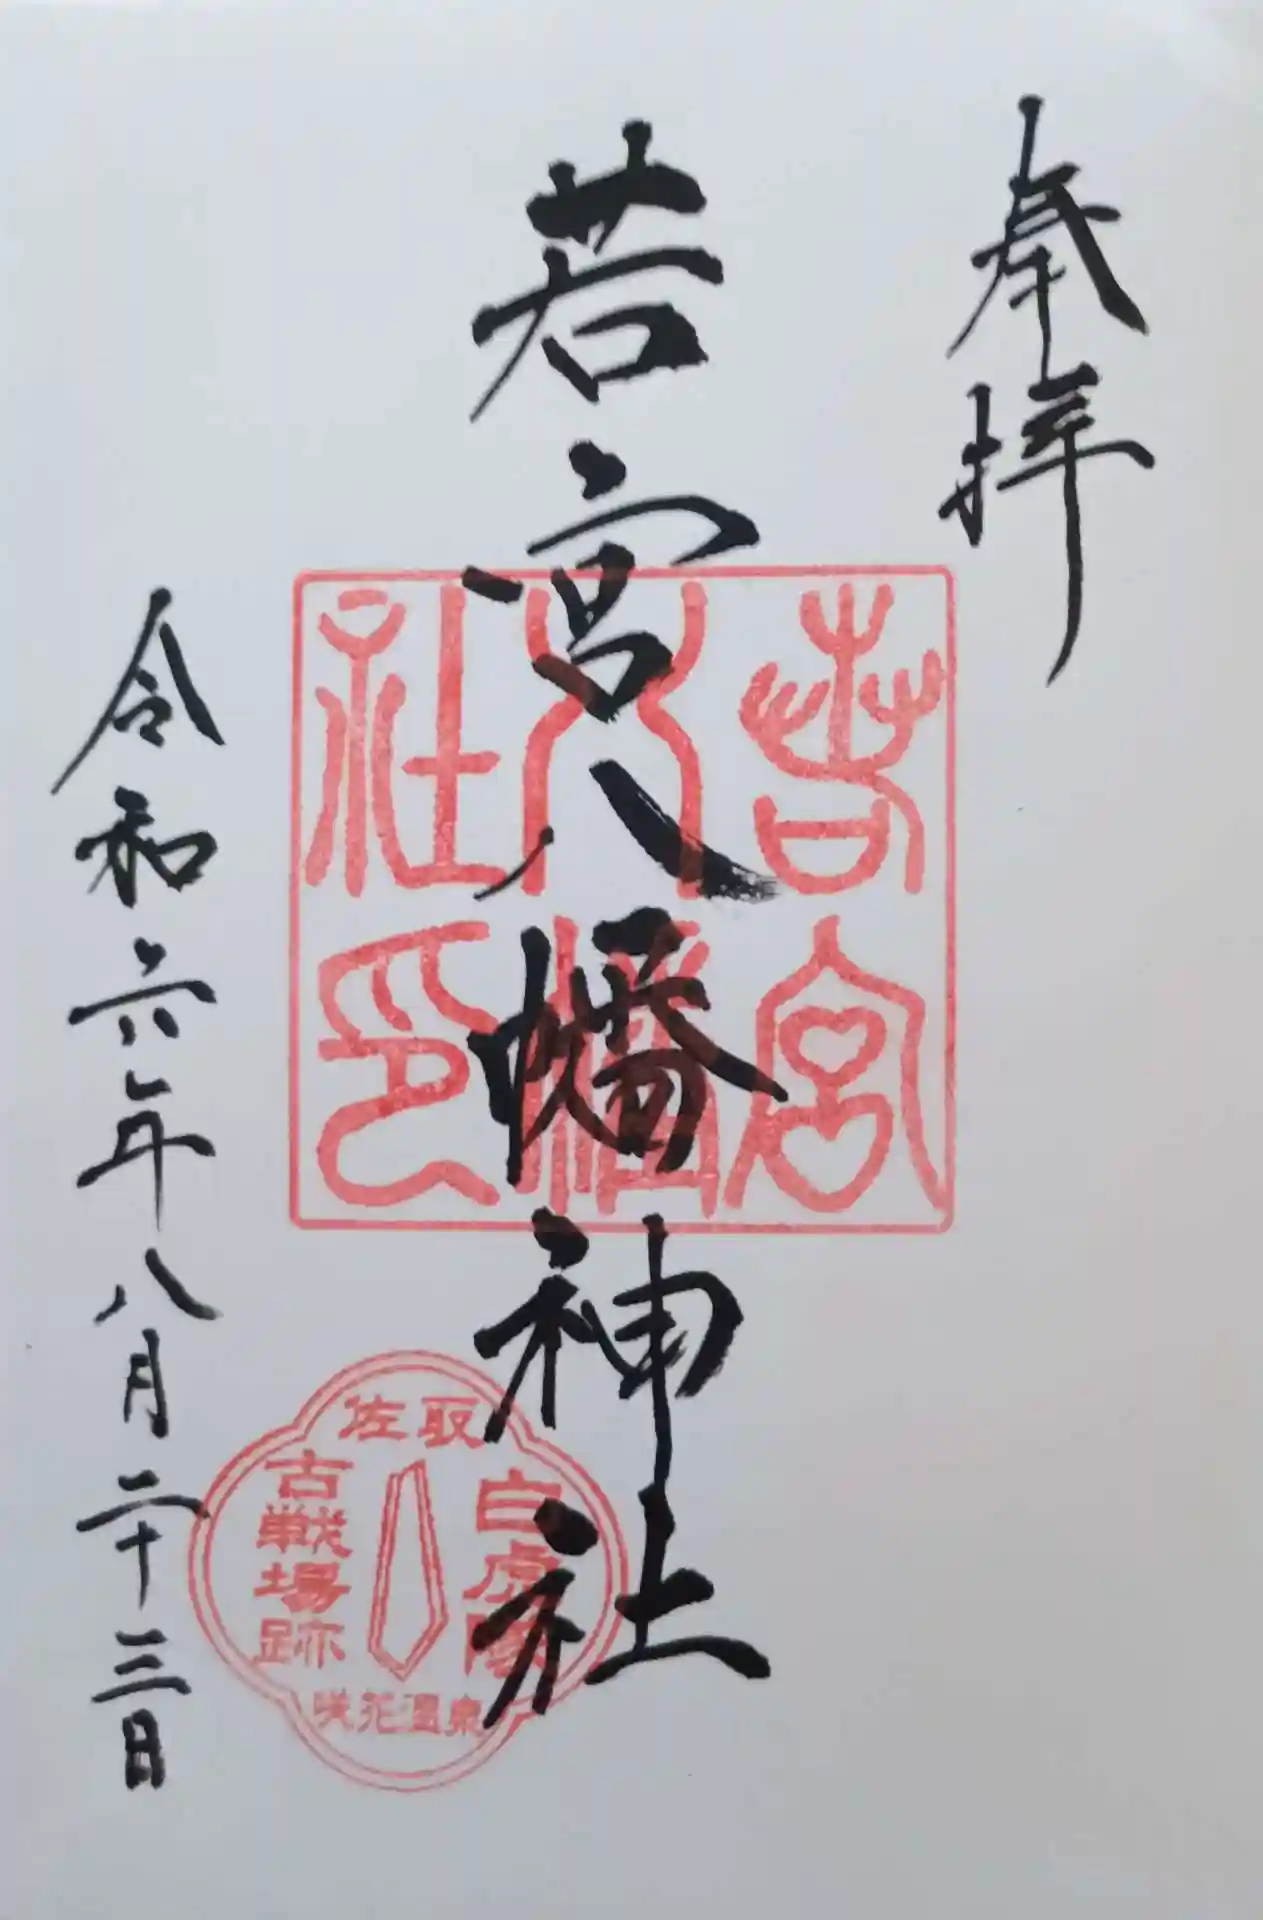 奉拝
若宮八幡神社
若宮
八幡
社印
佐取
白虎隊
古戦場跡
咲花温泉
令和六年八月二十三日